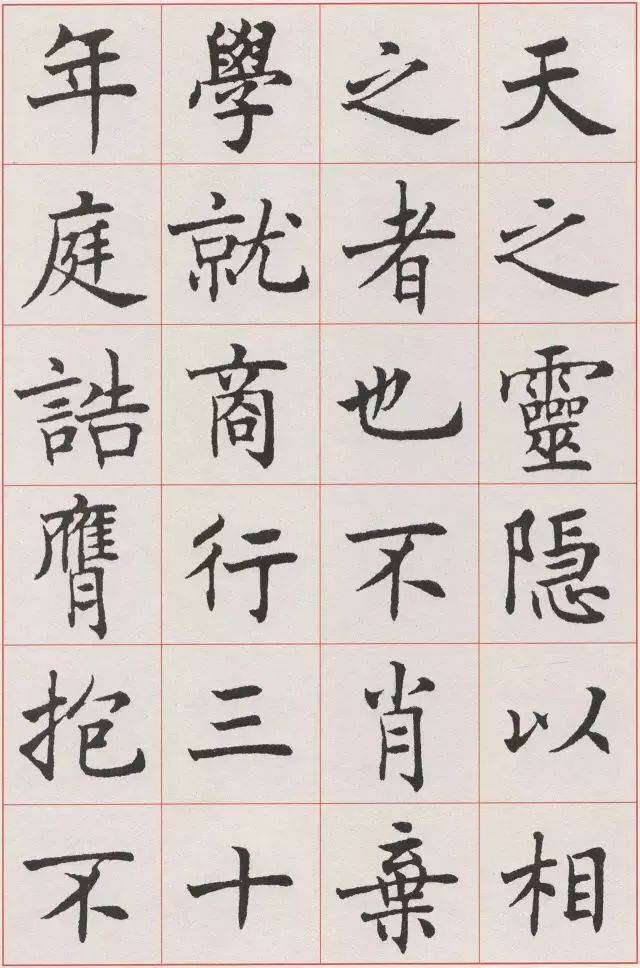 天之靈隐以相
之者也不肖棄
學就商行三十
年庭誥膺抱不